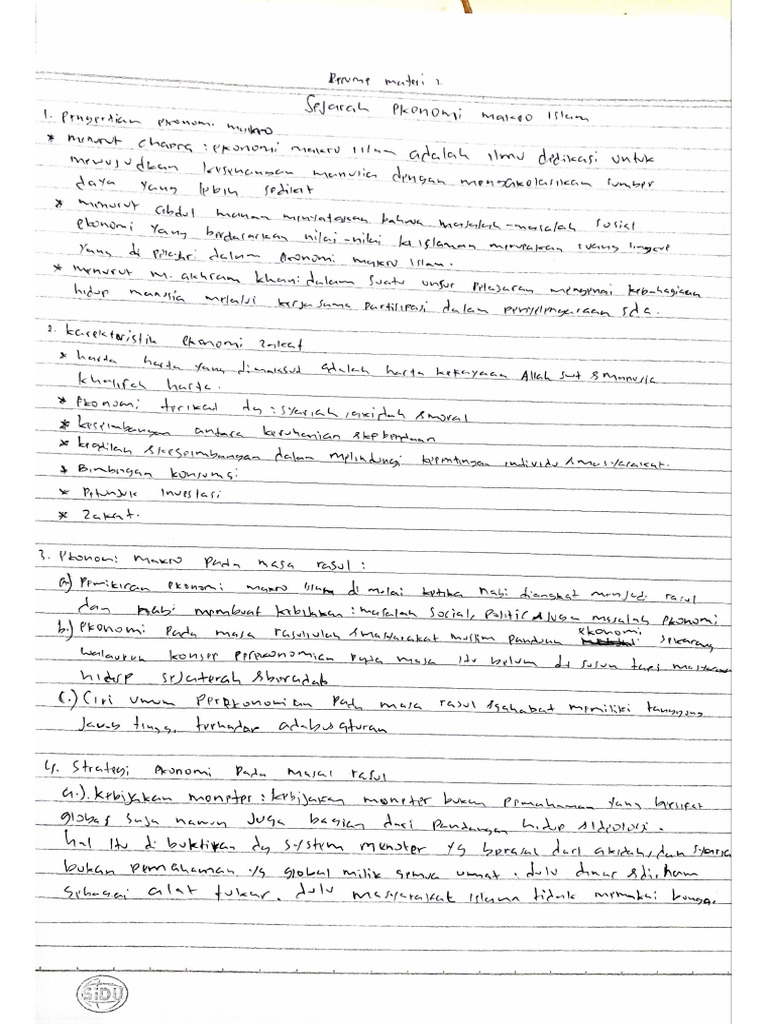 Resume materi 2
Sejarah ekonomi makro islam
1. Pengertian ekonomi makro
* menurut chapra : ekonomi makro islam adalah ilmu dedikasi untuk
mewujudkan kesenangan manusia dengan mengakolasikan sumber
daya yang lebih sedikit
* menurut abdul manan menyatakan bahwa masalah-masalah sosial
ekonomi yang berdasarkan nilai-nilai keislaman merupakan ruang lingkup
yang di pelajari dalam ekonomi makro islam.
* menurut m. akhram khan: dalam suatu unsur pelajaran mengenai kebahagiaan
hidup manusia melalui kerjasama partisipasi dalam penyelenggaraan sda.
2. karakteristik ekonomi zakat
* harta harta yang dimaksud adalah harta kekayaan Allah swt & manusia
khalifah harta.
* Ekonomi terikat dg : syariah, akidah & moral
* keseimbangan antara keruhanian & kebendaan
* keadilan & keseimbangan dalam melindungi kepentingan individu & masyarakat.
* Bimbingan konsumsi
* Petunjuk investasi
* Zakat.
3. Ekonomi makro pada masa rasul :
a.) Pemikiran ekonomi makro islam di mulai ketika nabi diangkat menjadi rasul
dan nabi membuat kebijakan : masalah social, politic & juga masalah ekonomi
b.) ekonomi pada masa rasulullah & masyarakat muslim panduan ekonomi sekarang
walaupun konsep perekonomian pada masa itu belum di susun tapi masyarakat
hidup sejahterah & beradab
c.) Ciri umum perekonomian pada masa rasul & sahabat memiliki tanggung
jawab tinggi terhadap adab & aturan
4. Strategi ekonomi pada masa rasul
a.). kebijakan moneter : kebijakan moneter bukan pemahaman yang bersifat
global saja namun juga bagian dari pandangan hidup & ideologi.
hal itu di buktikan dg system menoter yg berasal dari akidah, dan syaria
bukan pemahaman yg global milik semua umat. dulu dinar & dirham
sebagai alat tukar. dulu masyarakat islam tidak memakai bunga.
SiDU